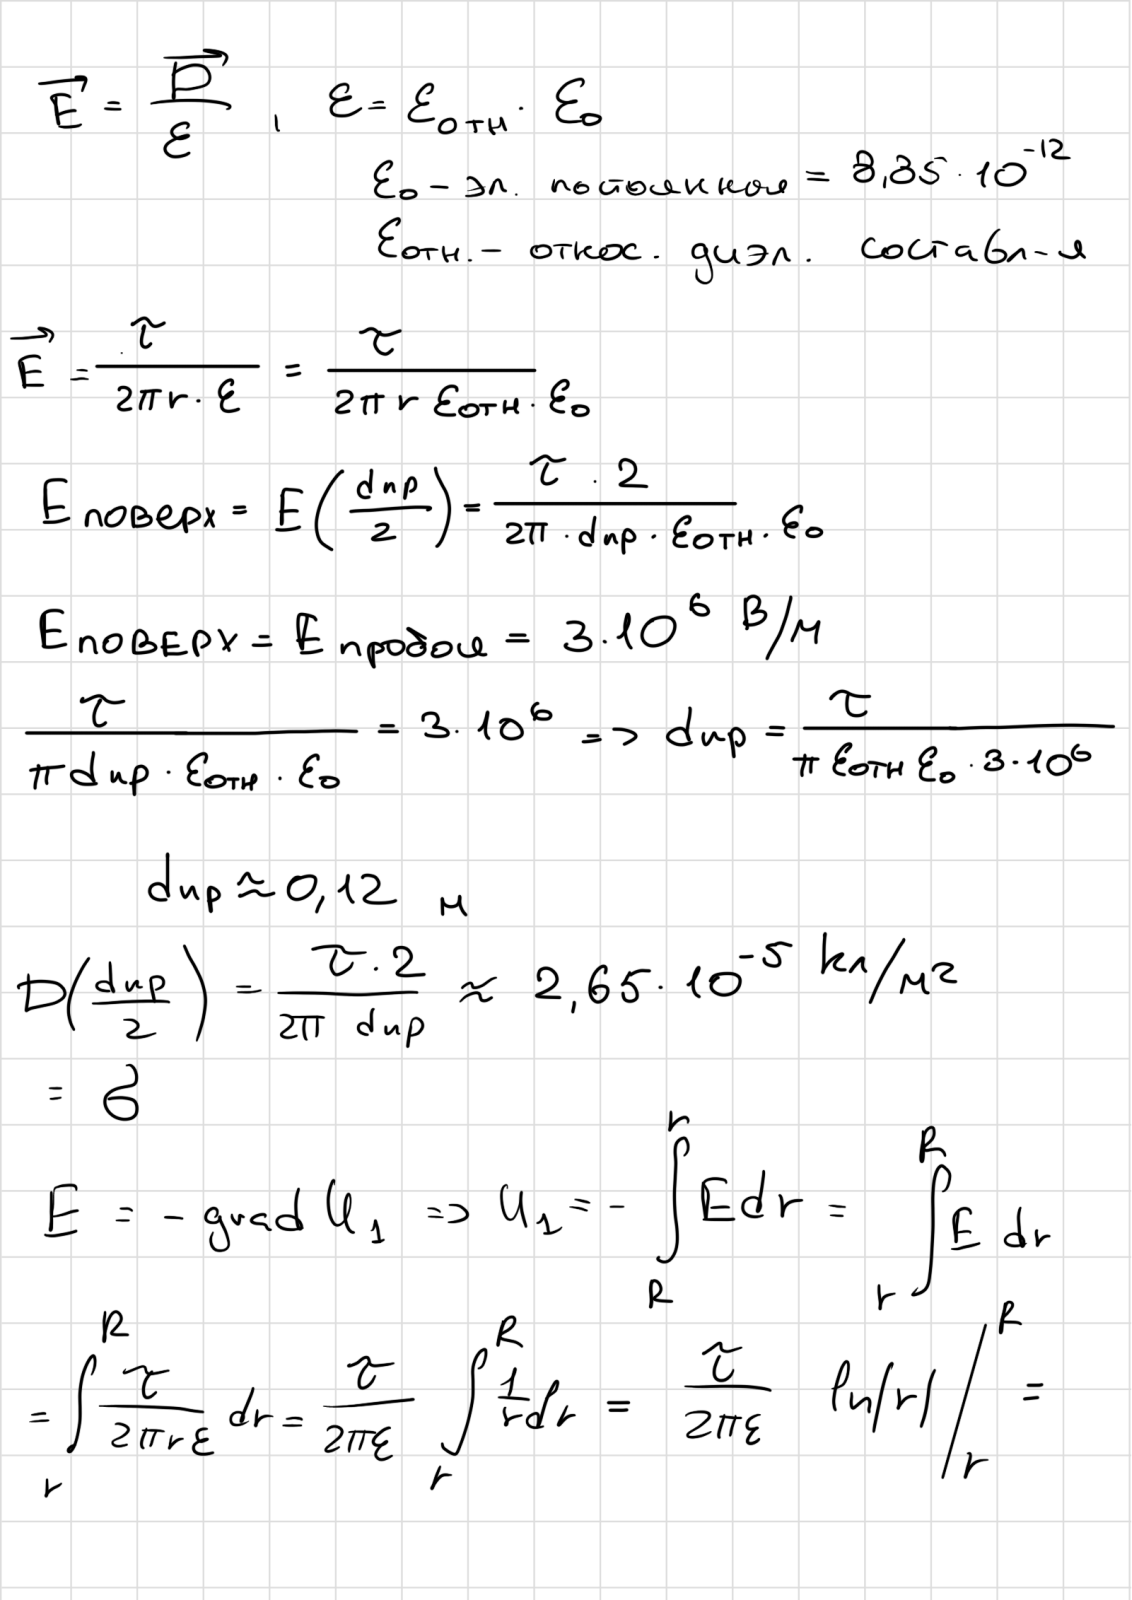 E⃗ = D⃗/ε, ε = ε_отн · ε_0
ε_0 – эл. постоянная = 8,85 · 10^-12
ε_отн. – относ. диэл. составл-я
E⃗ = τ/(2πr · ε) = τ/(2πr ε_отн · ε_0)
E_поверх = E(d_пр/2) = τ · 2/(2π · d_пр · ε_отн · ε_0)
E_поверх = E_пробоя = 3 · 10^6 В/м
τ/(π d_пр · ε_отн · ε_0) = 3 · 10^6 => d_пр = τ/(π ε_отн ε_0 · 3 · 10^6)
d_пр ≈ 0,12 м
D(d_пр/2) = τ · 2/(2π d_пр) ≈ 2,65 · 10^-5 кл/м²
= σ
E = - grad U_1 => U_1 = - ∫_R^r E dr = ∫_r^R E dr
= ∫_r^R τ/(2πrε) dr = τ/(2πε) ∫_r^R 1/r dr = τ/(2πε) ln|r| |_r^R =